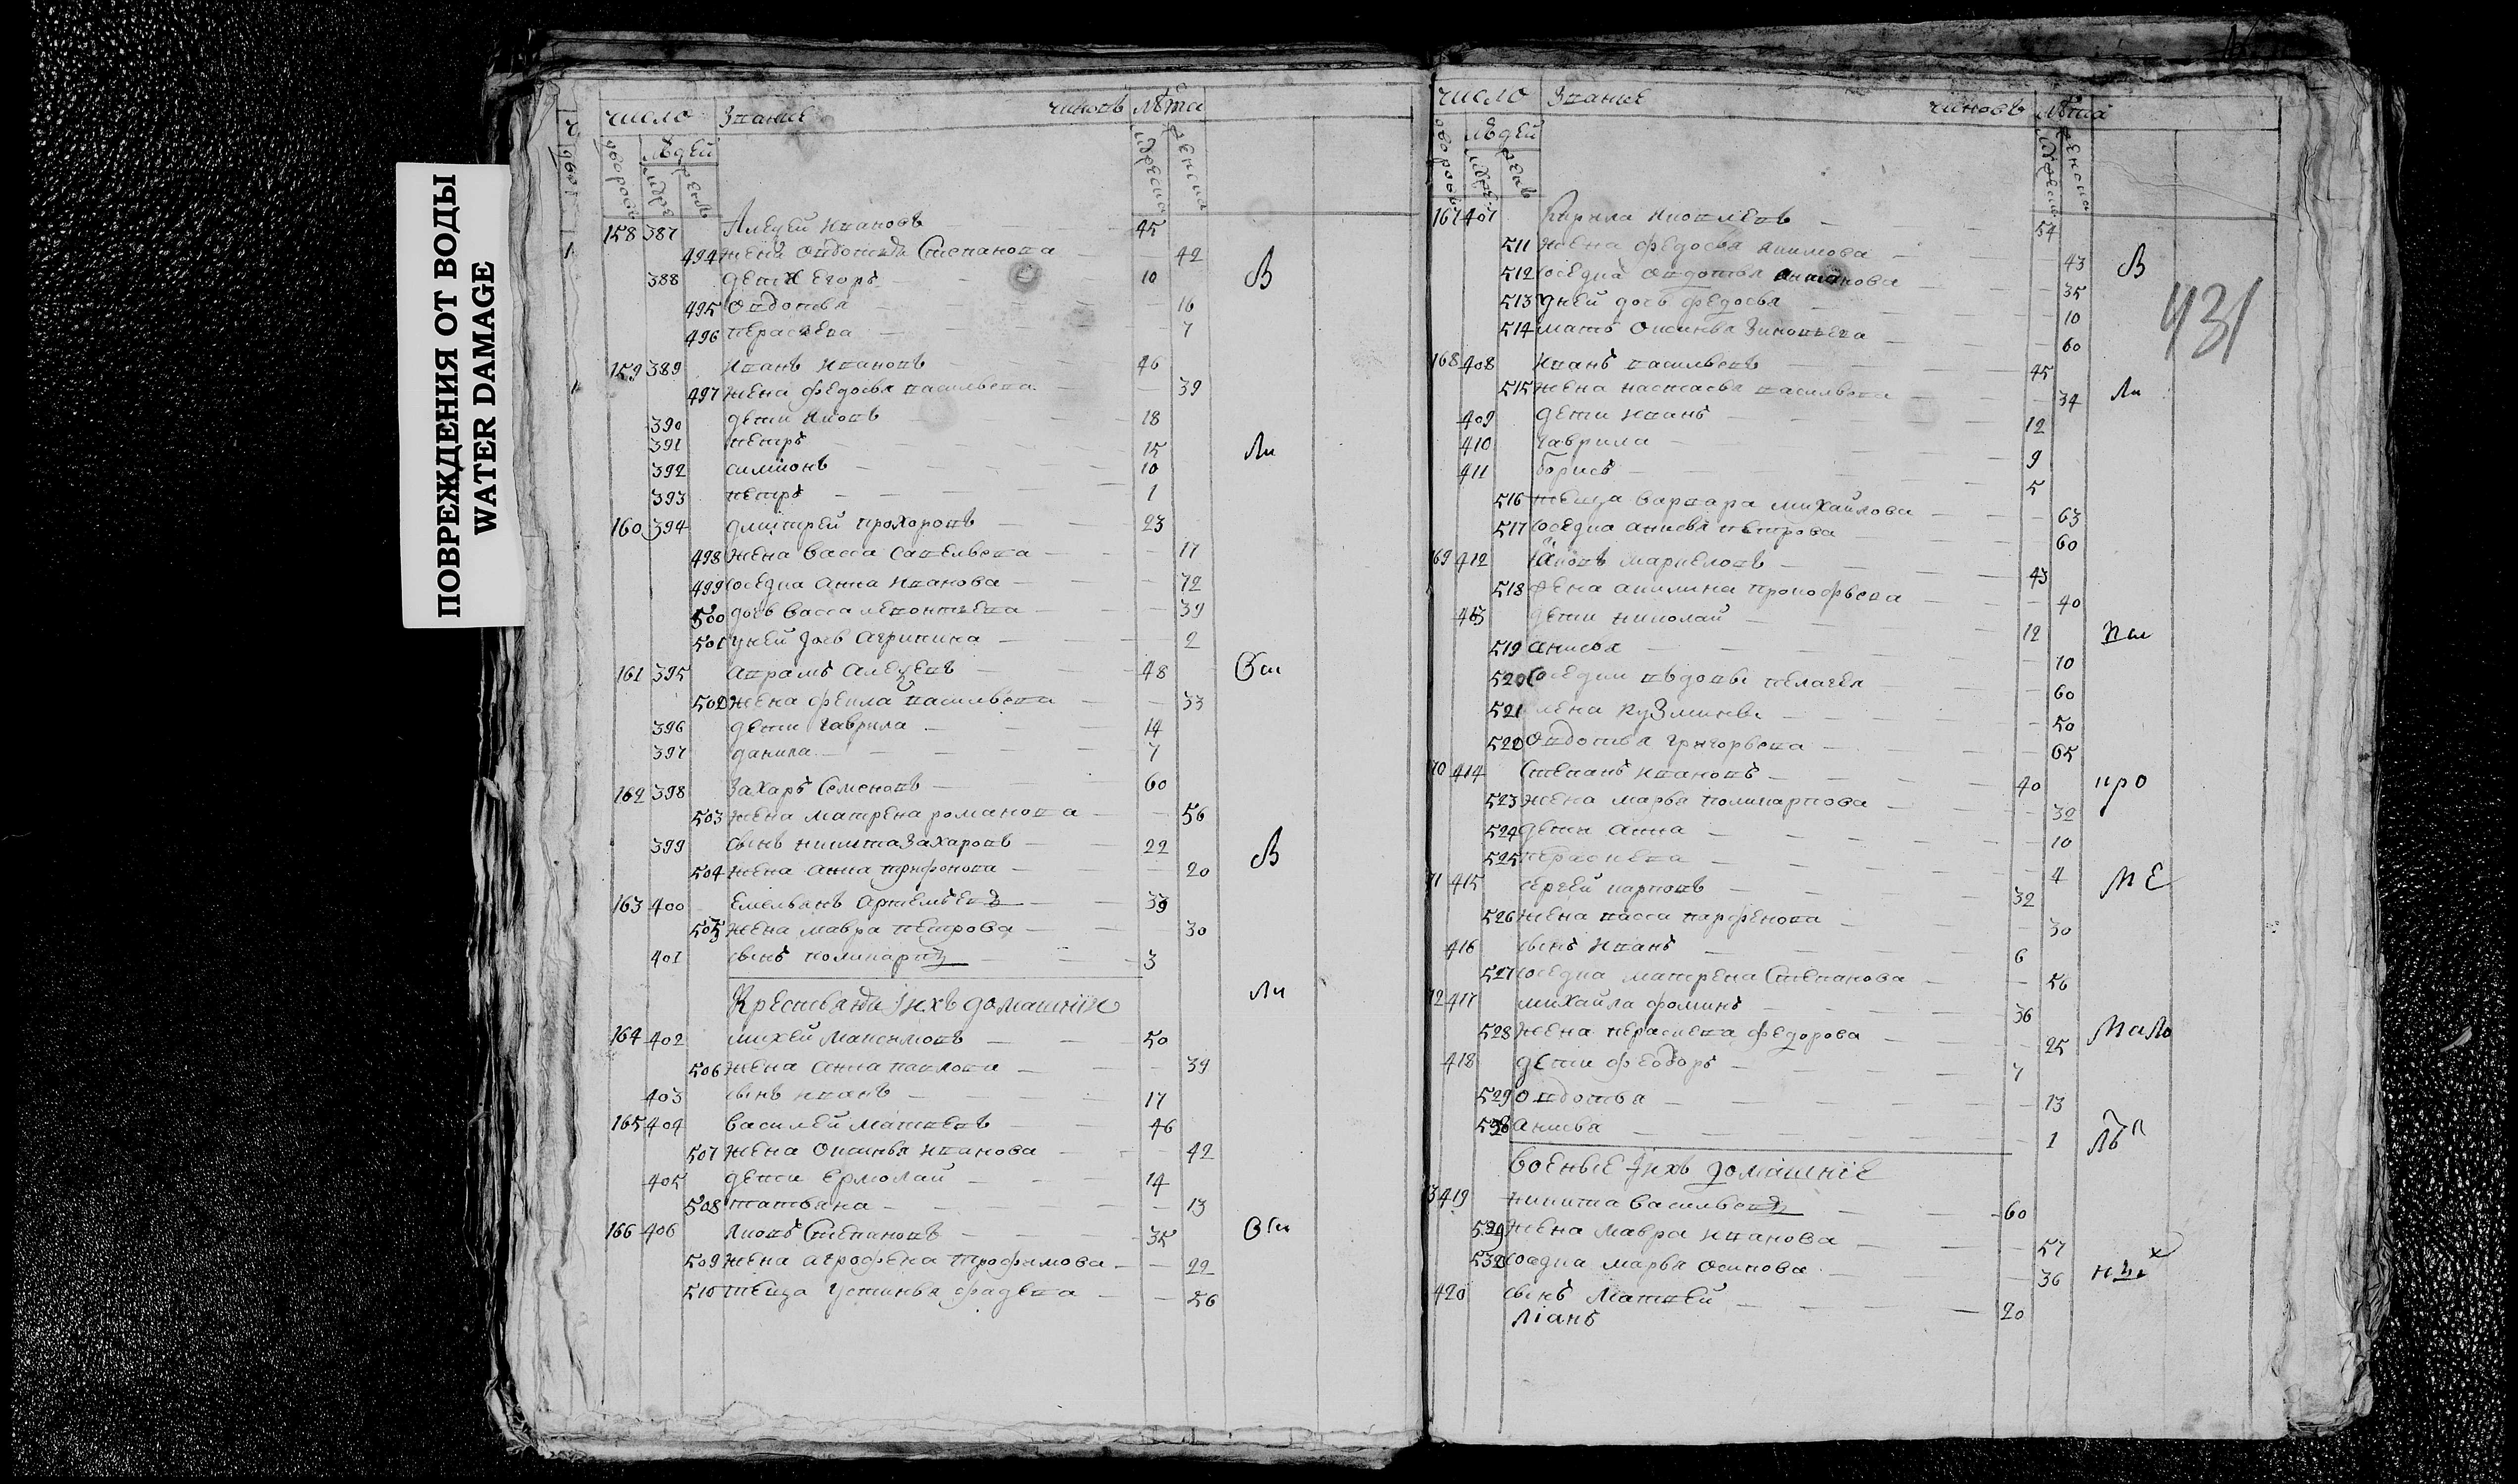 ПОВРЕЖДЕНИЯ ОТ ВОДЫ
WATER DAMAGE
число Звание чиновъ лѣта
дворовъ людей мужеска женска
158 387 Алеѯей Ивановъ 45
494 жена Овдотья Степанова 42
388 дети Егоръ 10 В
495 Овдотья 16
496 Парасковья 7
159 389 Иванъ Ивановъ 46
497 жена Федосья Васильева 39
390 дети Яковъ 18
391 Петръ 15 Ли
392 Симионъ 10
393 Петръ 1
160 394 Дмитрей Прохоровъ 23
498 жена Васса Савельева 17
499 соседка Анна Иванова 72
500 дочь Васса Леонтьева 39
501 у ней дочь Агрипина 2
161 395 Аврамъ Алеѯеевъ 48
502 жена Фекла Васильева 33
396 дети Гаврила 14
397 Данила 7
162 398 Захаръ Семеновъ 60
503 жена Матрена Романова 56
399 сынъ Никита Захаровъ 22 В
504 жена Анна Трифонова 20
163 400 Емельянъ Артемьевъ 39
505 жена Мавра Петрова 30
401 сынъ Поликарпъ 3
Крестьяня и ихъ домашнїи Ли
164 402 Михей Максимовъ 50
506 жена Анна Павлова 39
403 сынъ Иванъ 17
165 404 Василей Матвеевъ 46
507 жена Оксинья Иванова 42
405 дети Ермолай 14
508 Татьяна 13
166 406 Яковъ Степановъ 35
509 жена Агрофена Трофимова 22
510 теща Устинья Фадеева 56
431
число Звание чиновъ лѣта
дворовъ людей мужеска женска
167 407 Кирила Яковлевъ 54
511 жена Федосья Якимова 43 В
512 соседка Овдотья 35
513 у ней дочь Федосья 10
514 мать Оксинья Зиновьева 60
168 408 Иванъ Васильевъ 45
515 жена Настасья Васильева 34 Ли
409 дети Иванъ 12
410 Гаврила 9
411 Борисъ 5
516 теща Варвара Михайлова 63
517 соседка Анисья Петрова 60
169 412 Яковъ Маркеловъ 43
518 жена Акилина Прокофьева 40
413 дети Николай 12
519 Анисья 10
520 соседки вдовы Пелагея 60
521 Елена Кузмины 50
522 Овдотья Григорьева 65
170 414 Степанъ Ивановъ 40 про
523 жена Марья Поликарпова 32
524 дети Анна 10
525 Парасковья 4
171 415 Сергей Карповъ 32 МЕ
526 жена Васса Парфенова 30
416 сынъ Иванъ 6
527 соседка Матрена Степанова 56
172 417 Михайла Фоминъ 36
528 жена Парасковья Федорова 25
418 дети Феодоръ 7
529 Овдотья 13
Анисья 1
Военые и ихъ домашнїе
173 419 Никита Васильевъ 60
жена Мавра Иванова 57
соседка Марья Осипова 36
420 сынъ Матвей 20
ліанъ